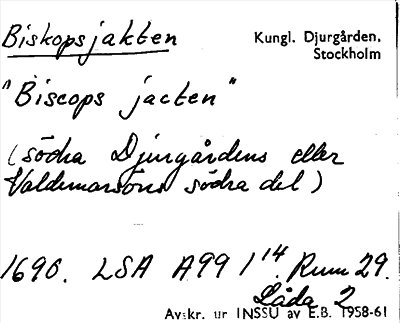 Biskopsjakten
Kungl. Djurgården,
Stockholm
"Biscops jacten"
(södra Djurgårdens eller
Valdemarsöns södra del)
1696. LSA A99 1 14. Rum 29.
Låda 2
Avskr. ur INSSU av E.B. 1958-61